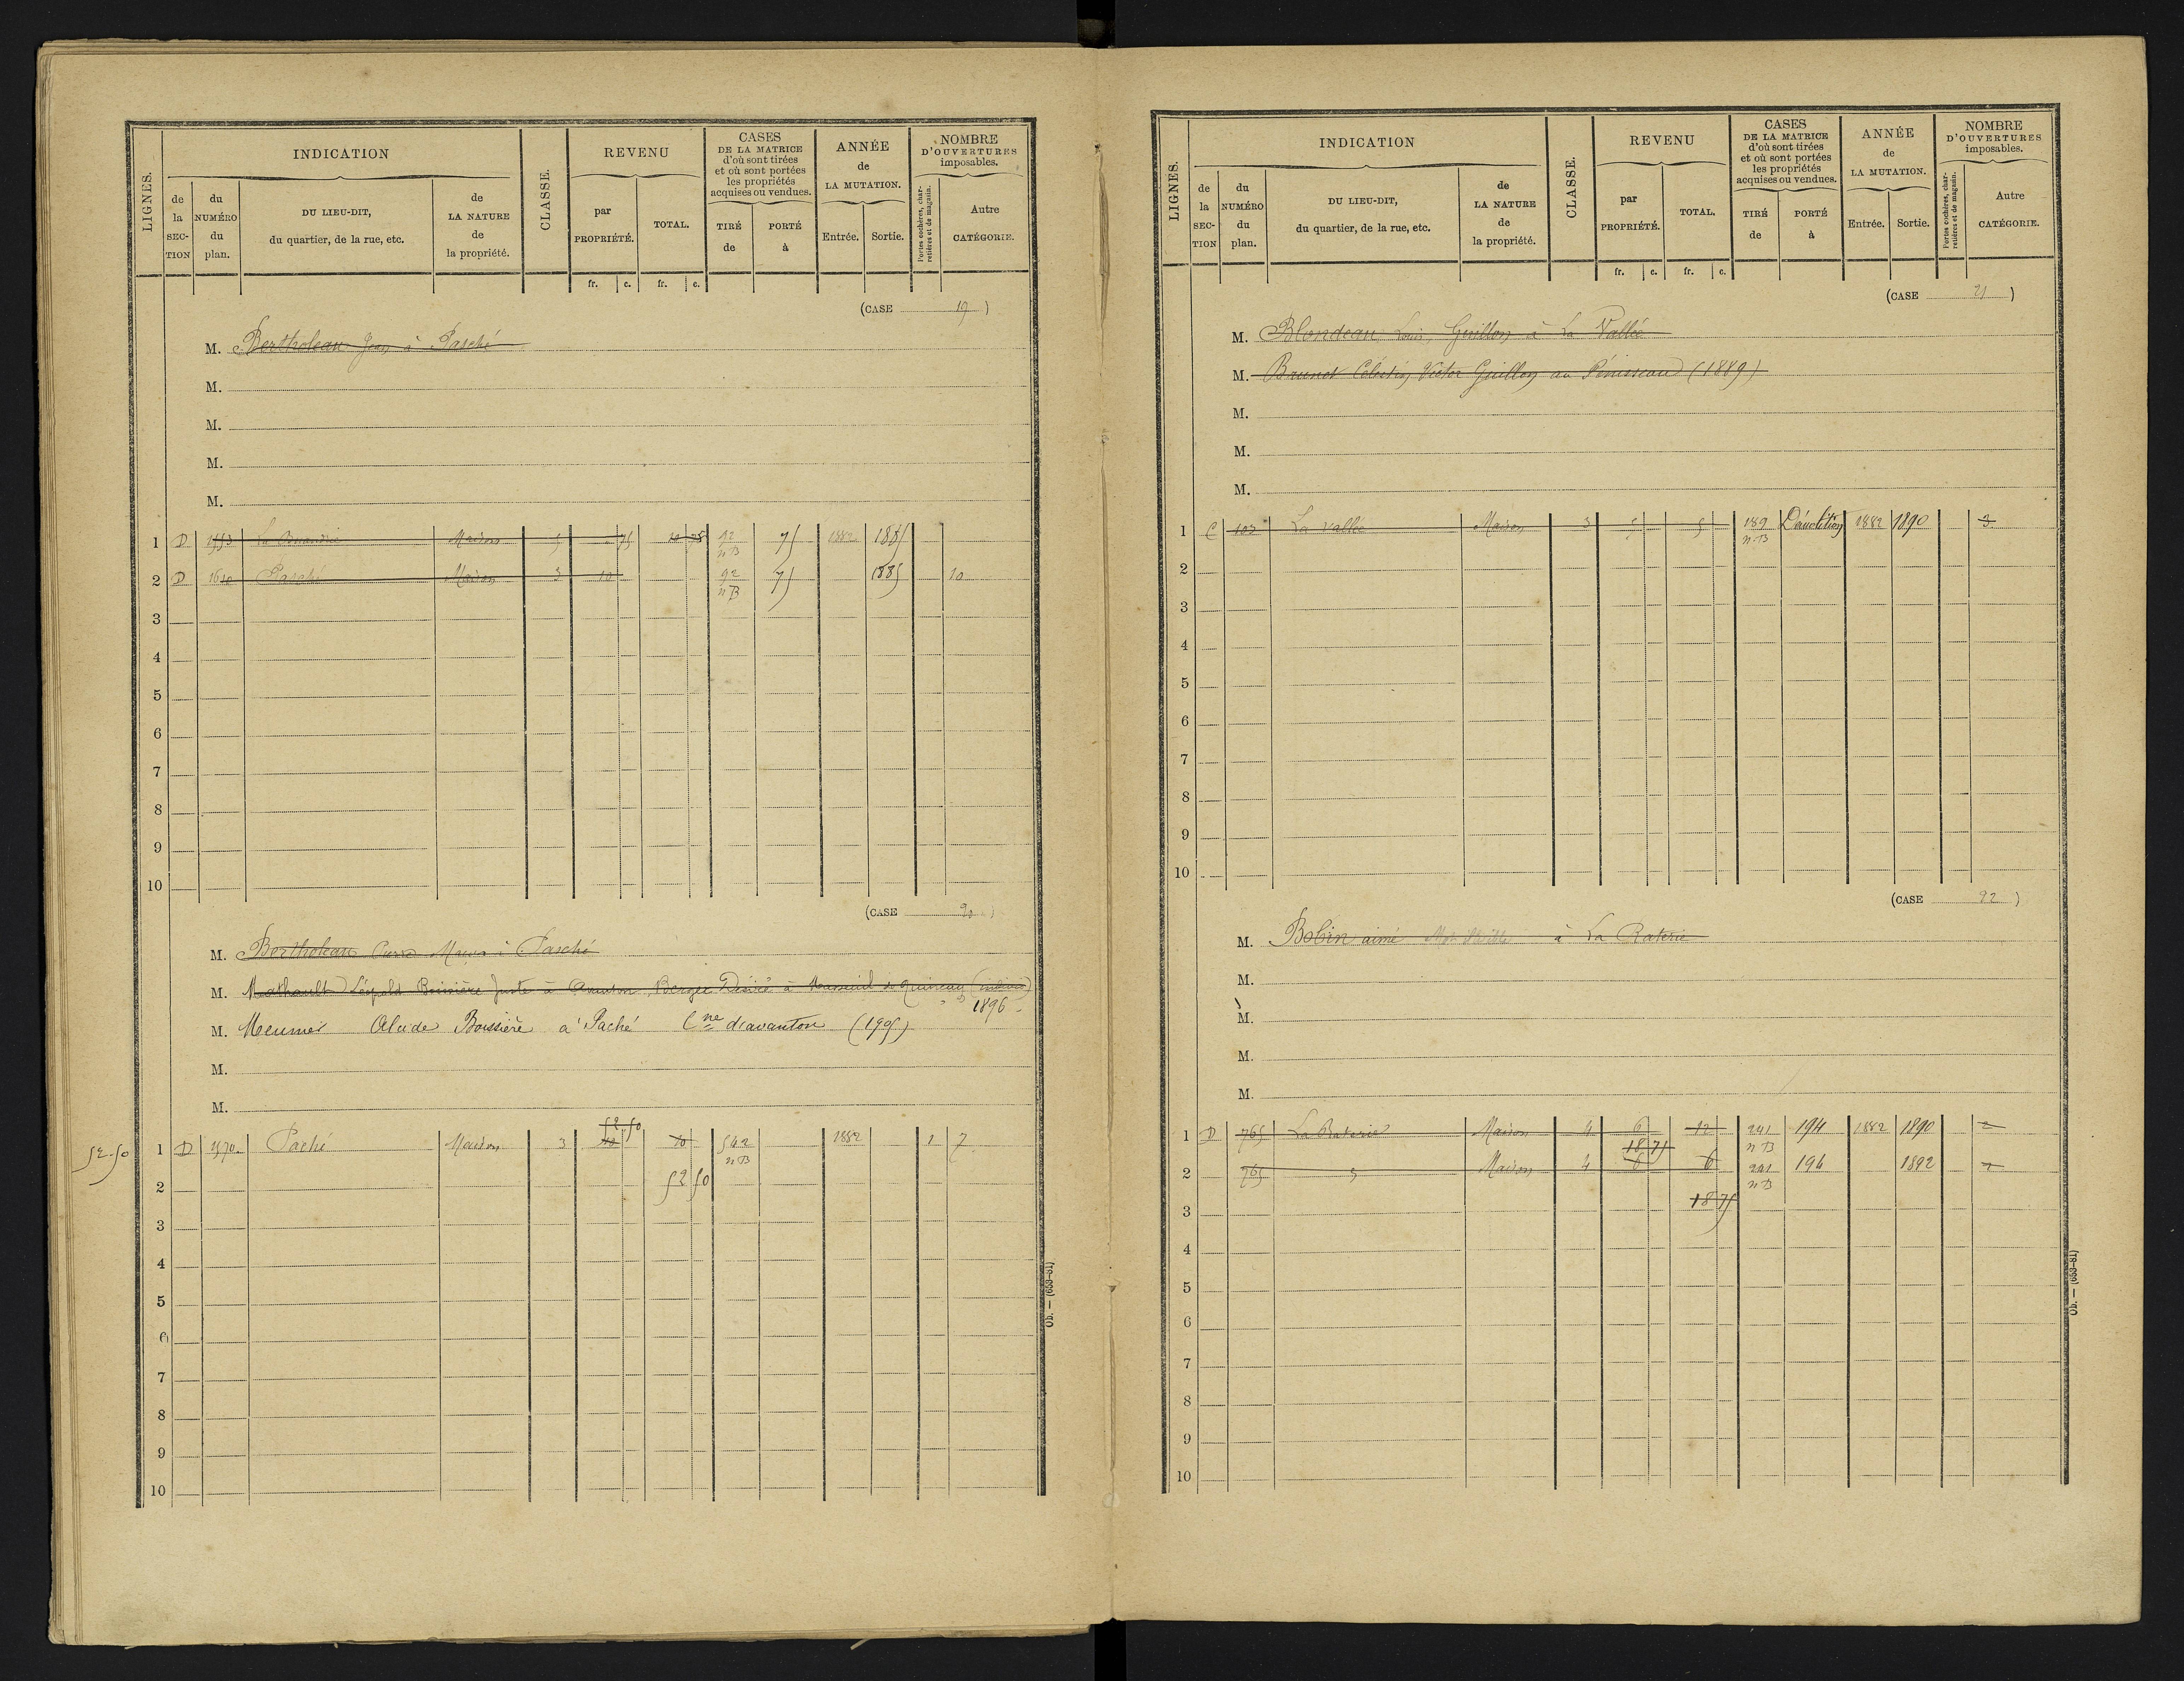 LIGNES.
INDICATION
de la SECTION
du NUMÉRO du plan.
DU LIEU-DIT, du quartier, de la rue, etc.
de LA NATURE de la propriété.
CLASSE.
REVENU
par PROPRIÉTÉ.
TOTAL.
fr. c. fr. c.
CASES DE LA MATRICE d'où sont tirées et où sont portées les propriétés acquises ou vendues.
TIRÉ de
PORTÉ à
ANNÉE de LA MUTATION.
Entrée. Sortie.
NOMBRE D'OUVERTURES imposables.
Portes cochères, charretières et de magasin.
Autre CATÉGORIE.
(CASE 19)
M. Bertholeau Jean à Pasché
M.
M.
M.
M.
1 D 1553 Maison 5 75 10 75 92 nB 75 1882 1885
2 D 1610 Pasché Maison 3 10 92 nB 75 1885 10
3
4
5
6
7
8
9
10
(CASE 20)
M. Bertholeau à Pasché
M. Léopold Boissière Juste à Avanton Berger Désiré à 1896
M. Meunier Alcide Boissière à Paché Cne d'avanton (1905)
M.
M.
52.50 1 D 1570 Paché Maison 3 10 52 50 10 542 nB 1882 1 7
2 52 50
3
4
5
6
7
8
9
10
Ob. — (653-81)
LIGNES.
INDICATION
de la SECTION
du NUMÉRO du plan.
DU LIEU-DIT, du quartier, de la rue, etc.
de LA NATURE de la propriété.
CLASSE.
REVENU
par PROPRIÉTÉ.
TOTAL.
fr. c. fr. c.
CASES DE LA MATRICE d'où sont tirées et où sont portées les propriétés acquises ou vendues.
TIRÉ de
PORTÉ à
ANNÉE de LA MUTATION.
Entrée. Sortie.
NOMBRE D'OUVERTURES imposables.
Portes cochères, charretières et de magasin.
Autre CATÉGORIE.
(CASE 21)
M. Blondeau Louis, Guillon à La Vallée
M. Brunet Célestin, Victor Guillon au (1889)
M.
M.
M.
1 C 103 La Vallée Maison 3 5 5 189 nB Démolition 1882 1890 3
2
3
4
5
6
7
8
9
10
(CASE 22)
M. Bobin aimé à La Raterie
M.
M.
M.
M.
1 D 765 La Raterie Maison 4 6 12 241 nB 194 1882 1890 2
2 765 Maison 4 6 18 75 6 241 nB 194 1892 2
3 18 75
4
5
6
7
8
9
10
Ob. — (653-81)